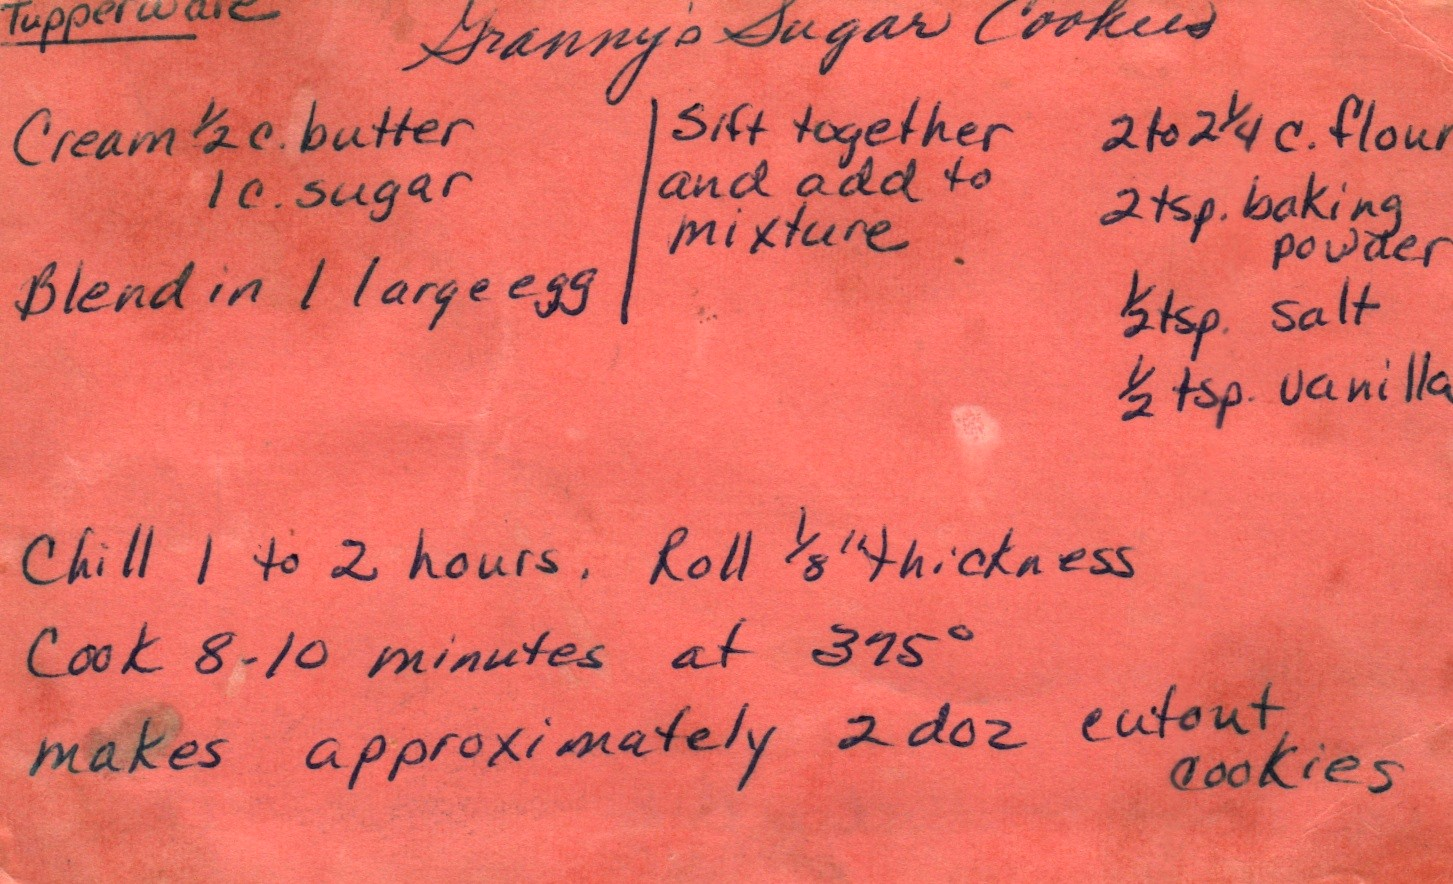 Tupperware
Granny's Sugar Cookies
Cream 1/2 c. butter
1 c. sugar
Blend in 1 large egg
Sift together
and add to
mixture
2 to 2 1/4 c. flour
2 tsp. baking
powder
1/2 tsp. salt
1/2 tsp. vanilla
Chill 1 to 2 hours. Roll 1/8" thickness
Cook 8-10 minutes at 375°
makes approximately 2 doz cutout
cookies